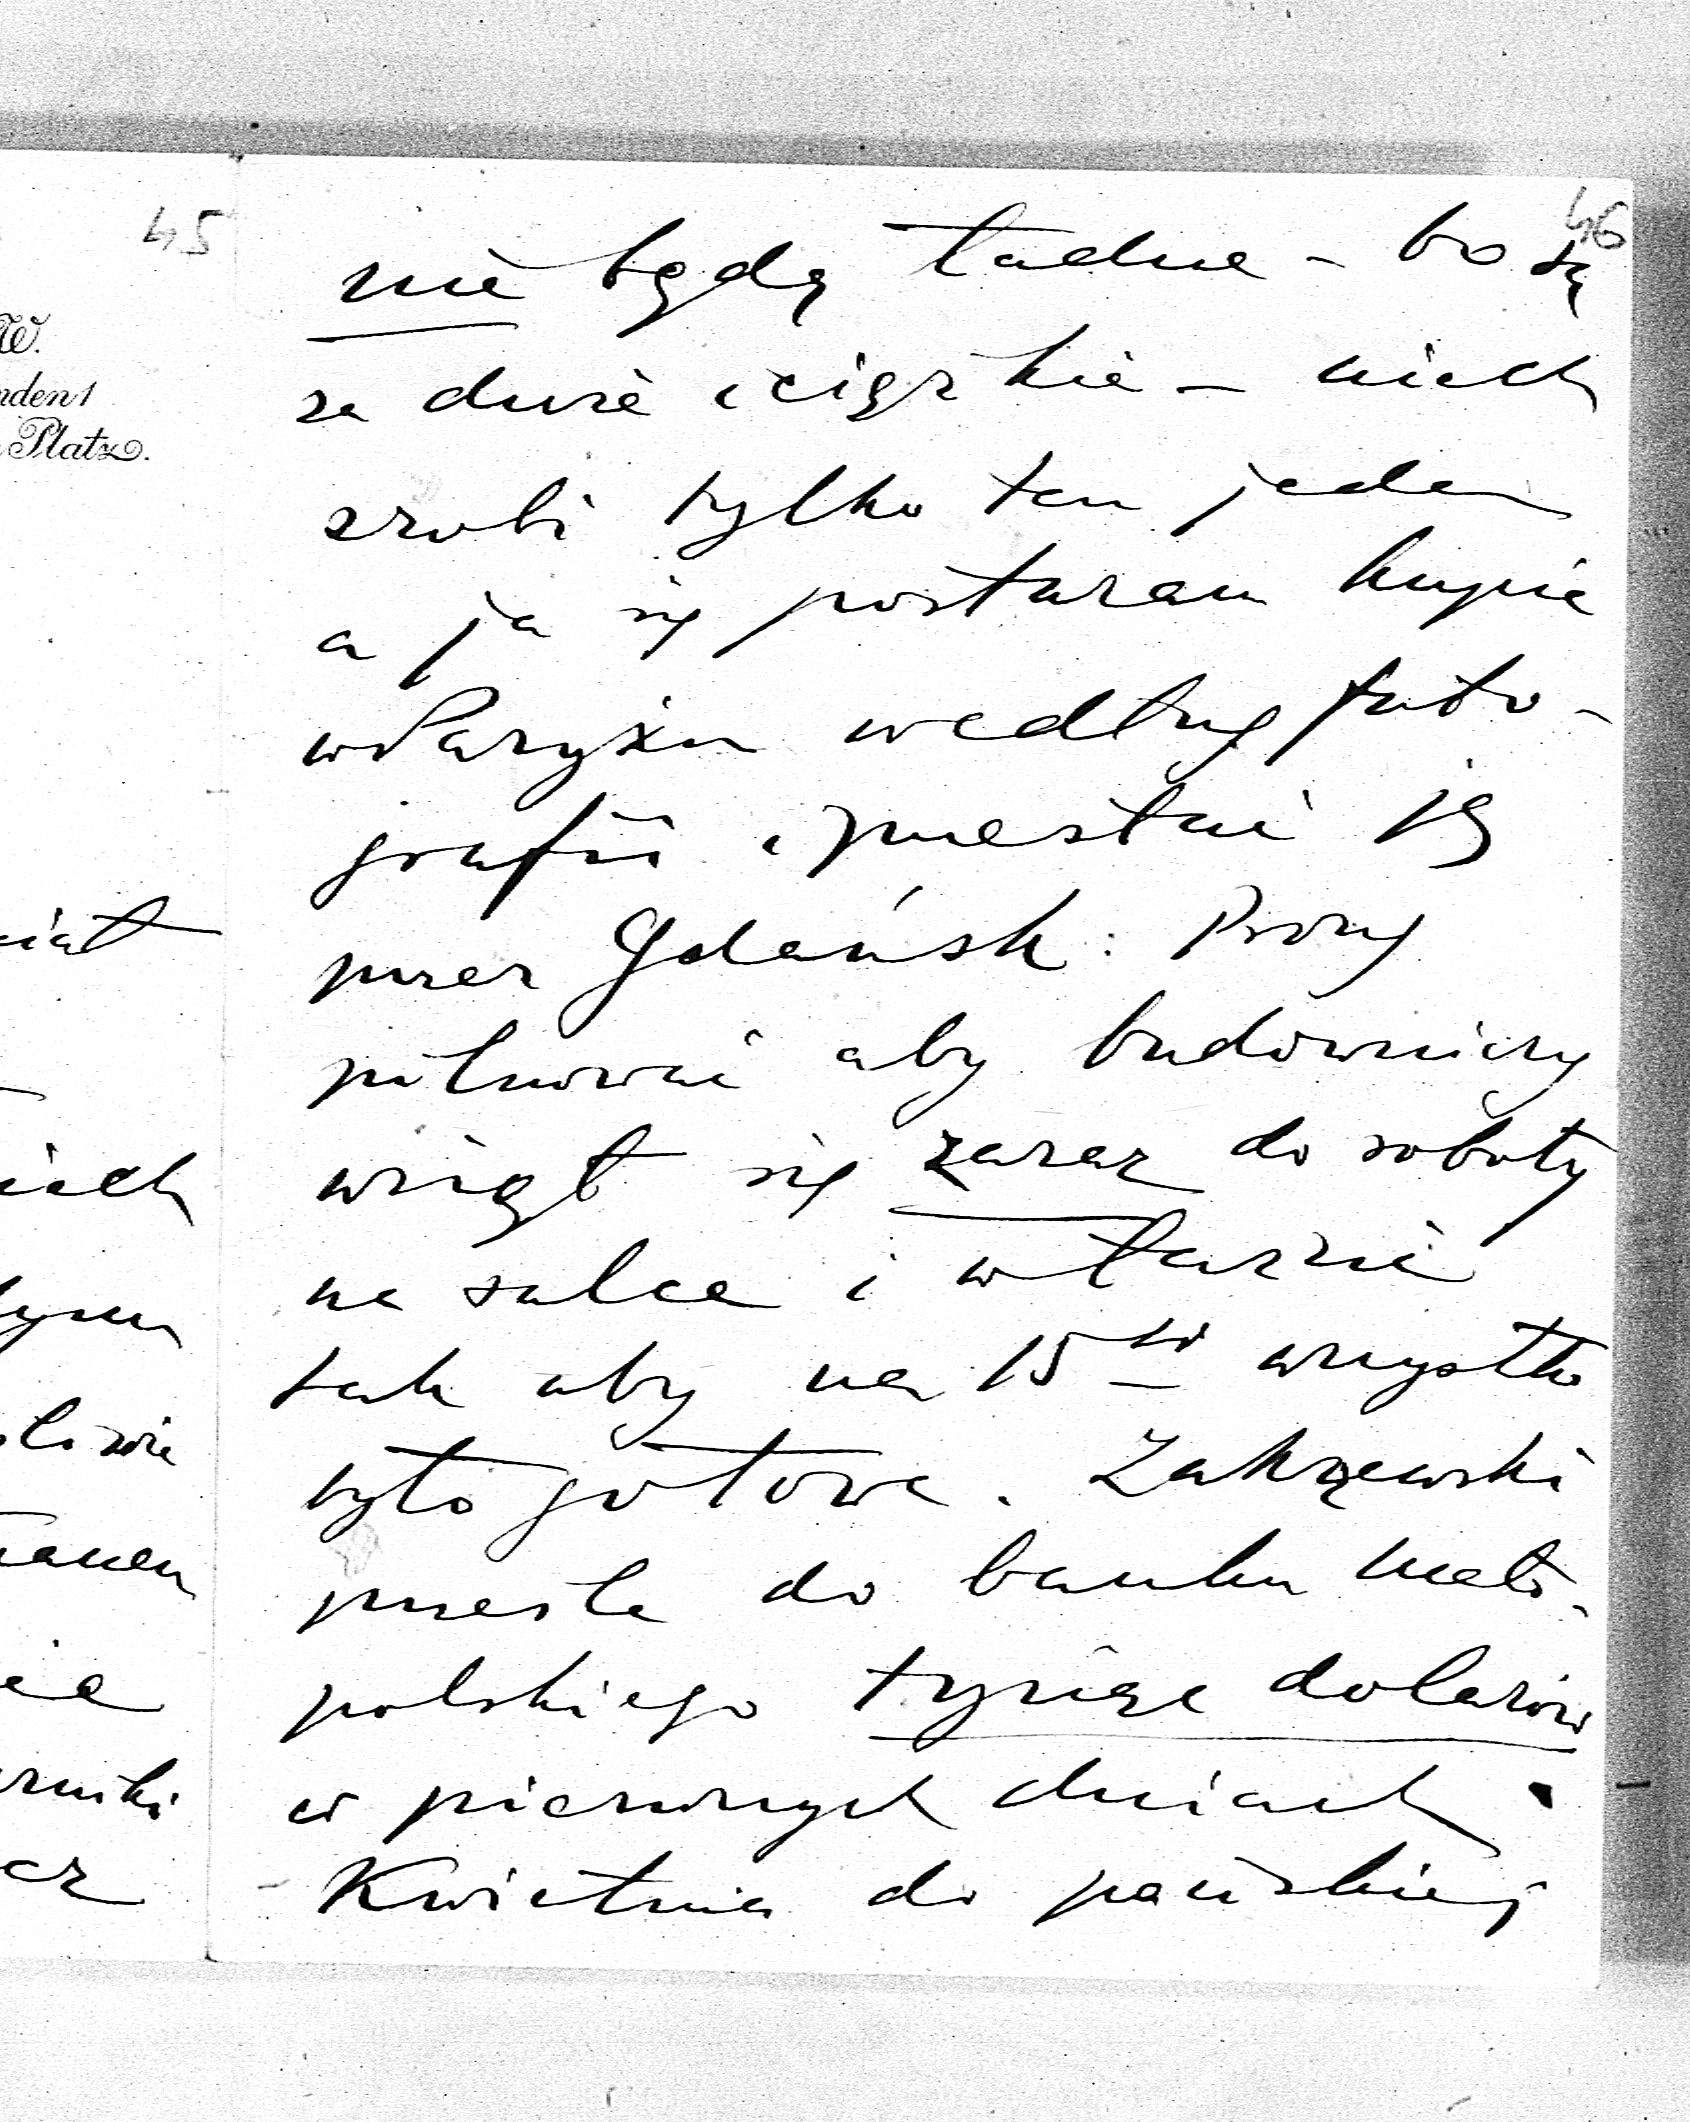 45
W.
nden 1
Platz.
46
nie będą ładne - bo są
za duże i ciężkie - niech
zrobi tylko ten jeden
a ja się postaram kupić
w Paryżu według foto-
grafii i przesłać ją
przez Gdańsk. Proszę
pilnować aby budowniczy
wziął się zaraz do roboty
na salce i w łazni
tak aby na 15ty wszystko
było gotowe. Zakrzewski
prześle do banku Mało-
polskiego tysiąc dolarów
w pierwszych dniach
Kwietnia do pańskiej